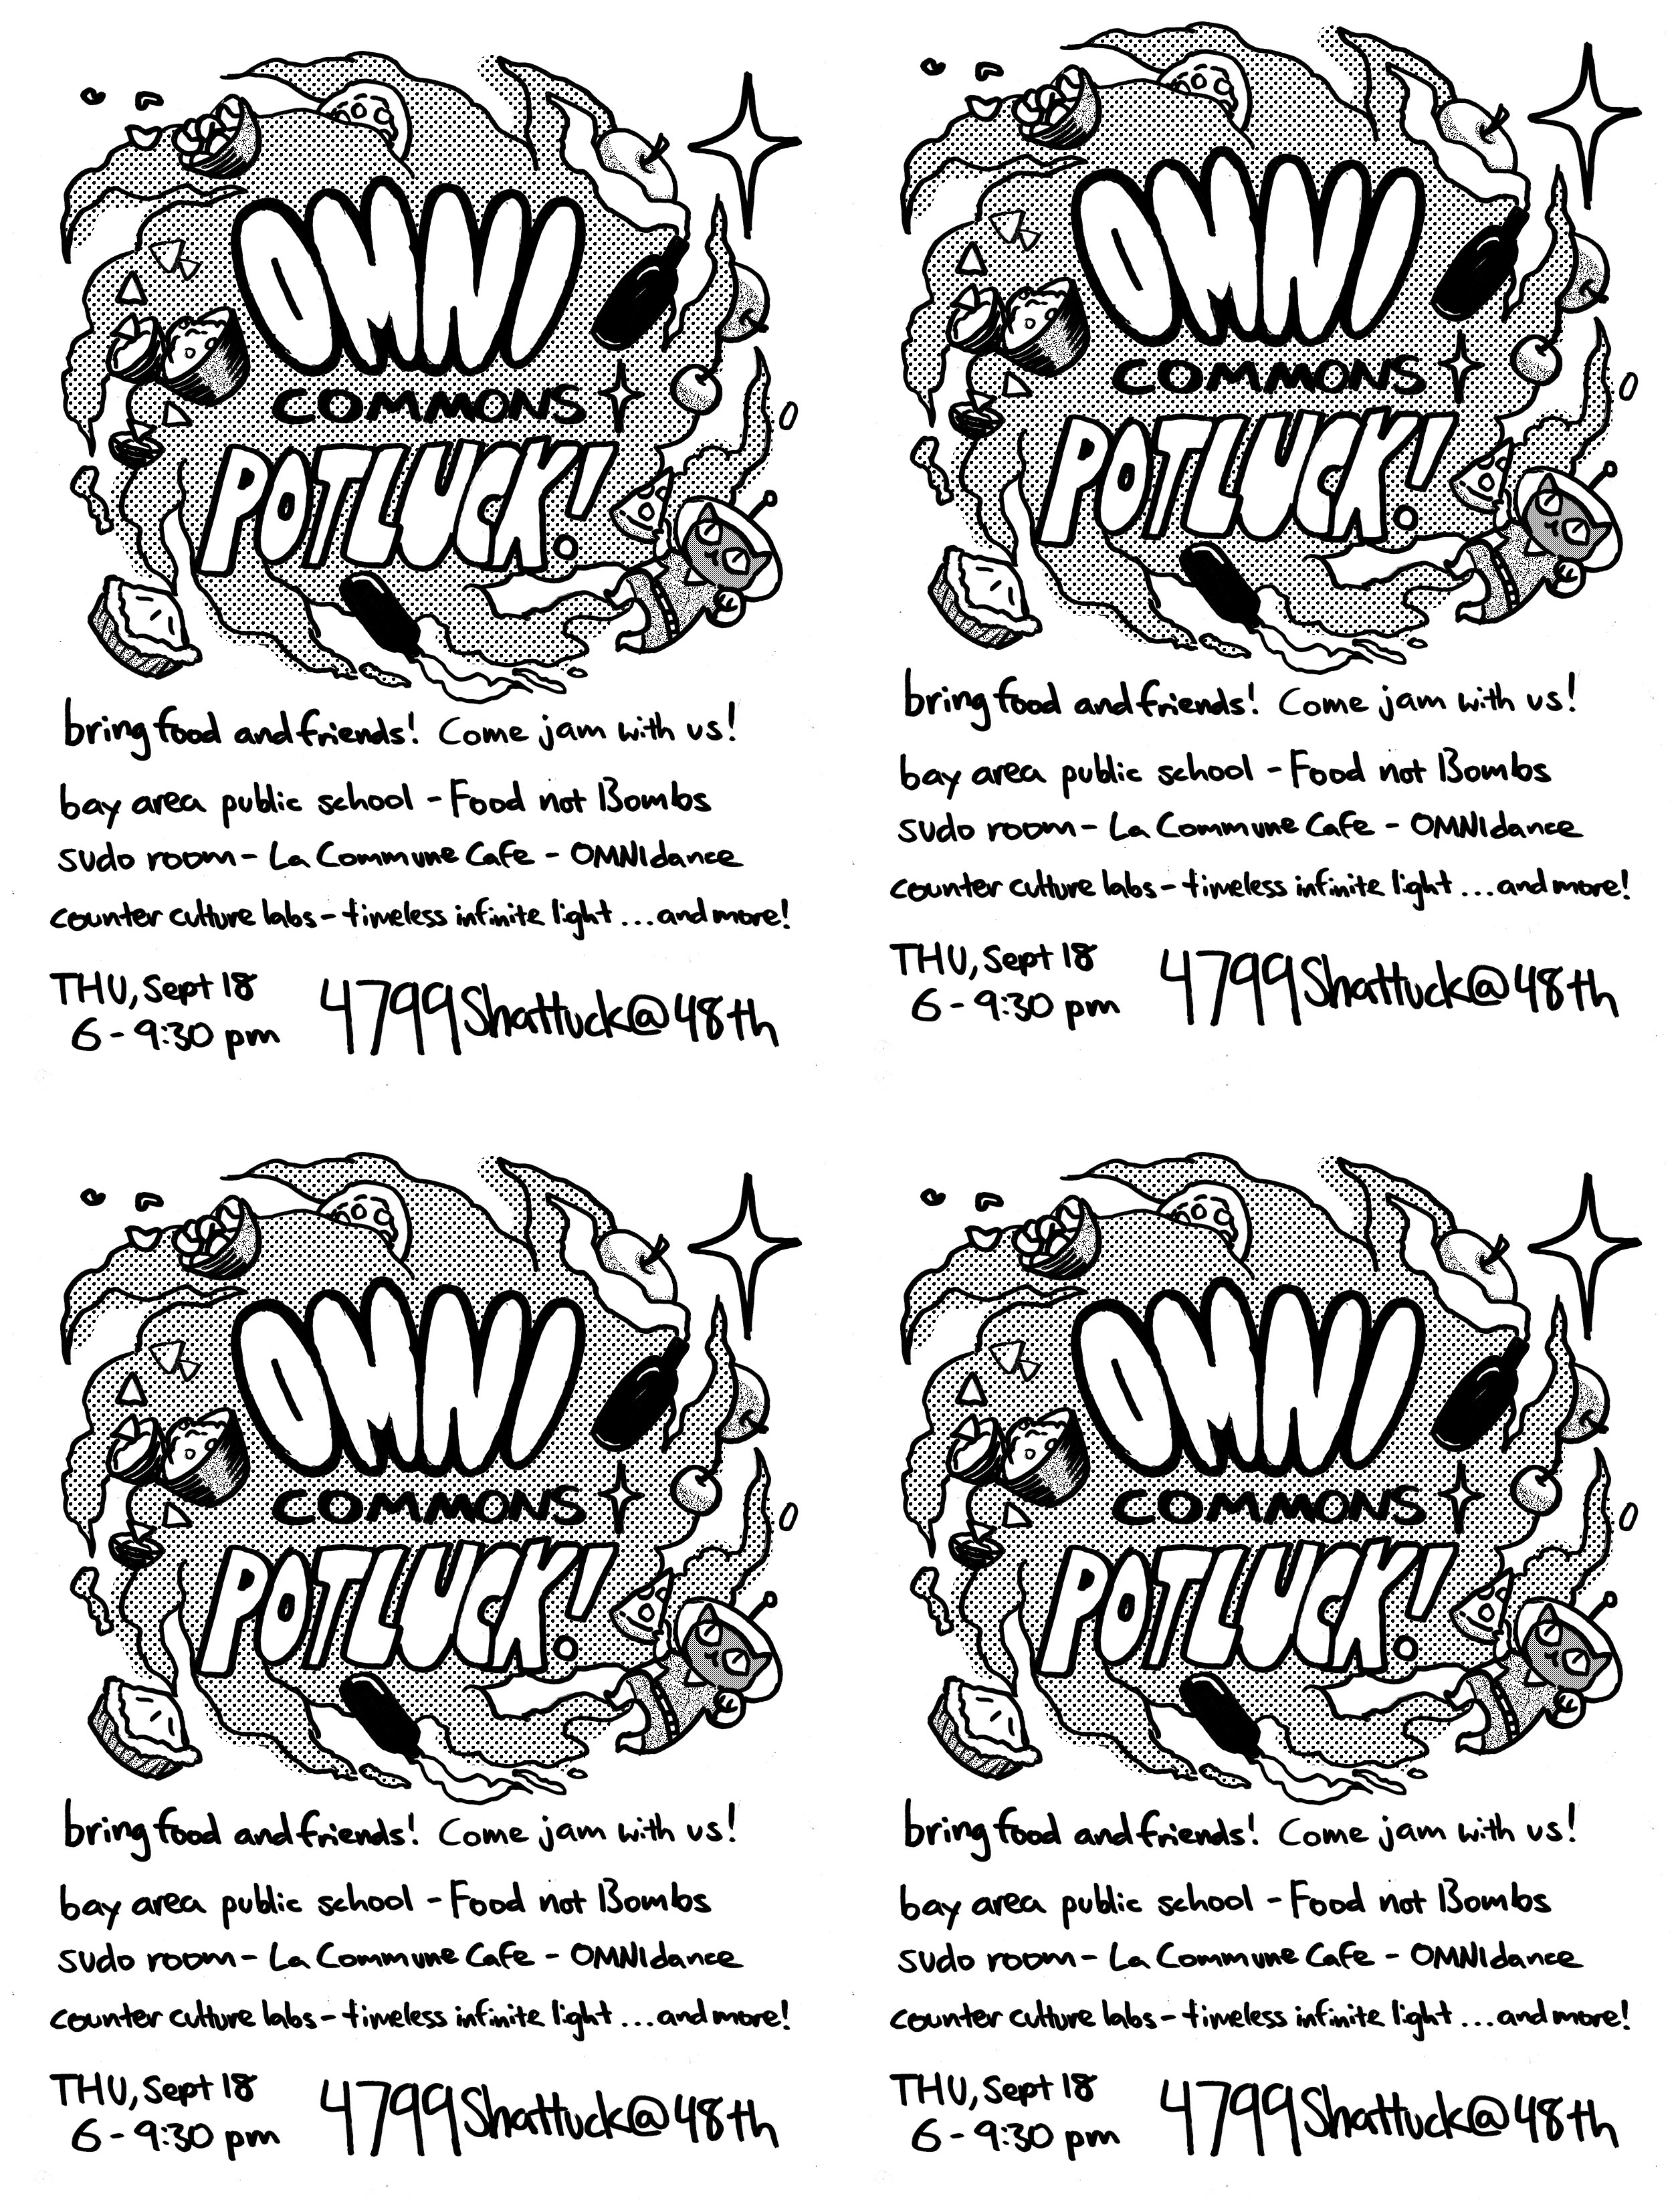 OMNI
COMMONS
POTLUCK!
bring food and friends! Come jam with us!
bay area public school - Food not Bombs
sudo room - La Commune Cafe - OMNIdance
counter culture labs - timeless infinite light ... and more!
THU, Sept 18
6 - 9:30 pm
4799 Shattuck @ 48th
OMNI
COMMONS
POTLUCK!
bring food and friends! Come jam with us!
bay area public school - Food not Bombs
sudo room - La Commune Cafe - OMNIdance
counter culture labs - timeless infinite light ... and more!
THU, Sept 18
6 - 9:30 pm
4799 Shattuck @ 48th
OMNI
COMMONS
POTLUCK!
bring food and friends! Come jam with us!
bay area public school - Food not Bombs
sudo room - La Commune Cafe - OMNIdance
counter culture labs - timeless infinite light ... and more!
THU, Sept 18
6 - 9:30 pm
4799 Shattuck @ 48th
OMNI
COMMONS
POTLUCK!
bring food and friends! Come jam with us!
bay area public school - Food not Bombs
sudo room - La Commune Cafe - OMNIdance
counter culture labs - timeless infinite light ... and more!
THU, Sept 18
6 - 9:30 pm
4799 Shattuck @ 48th